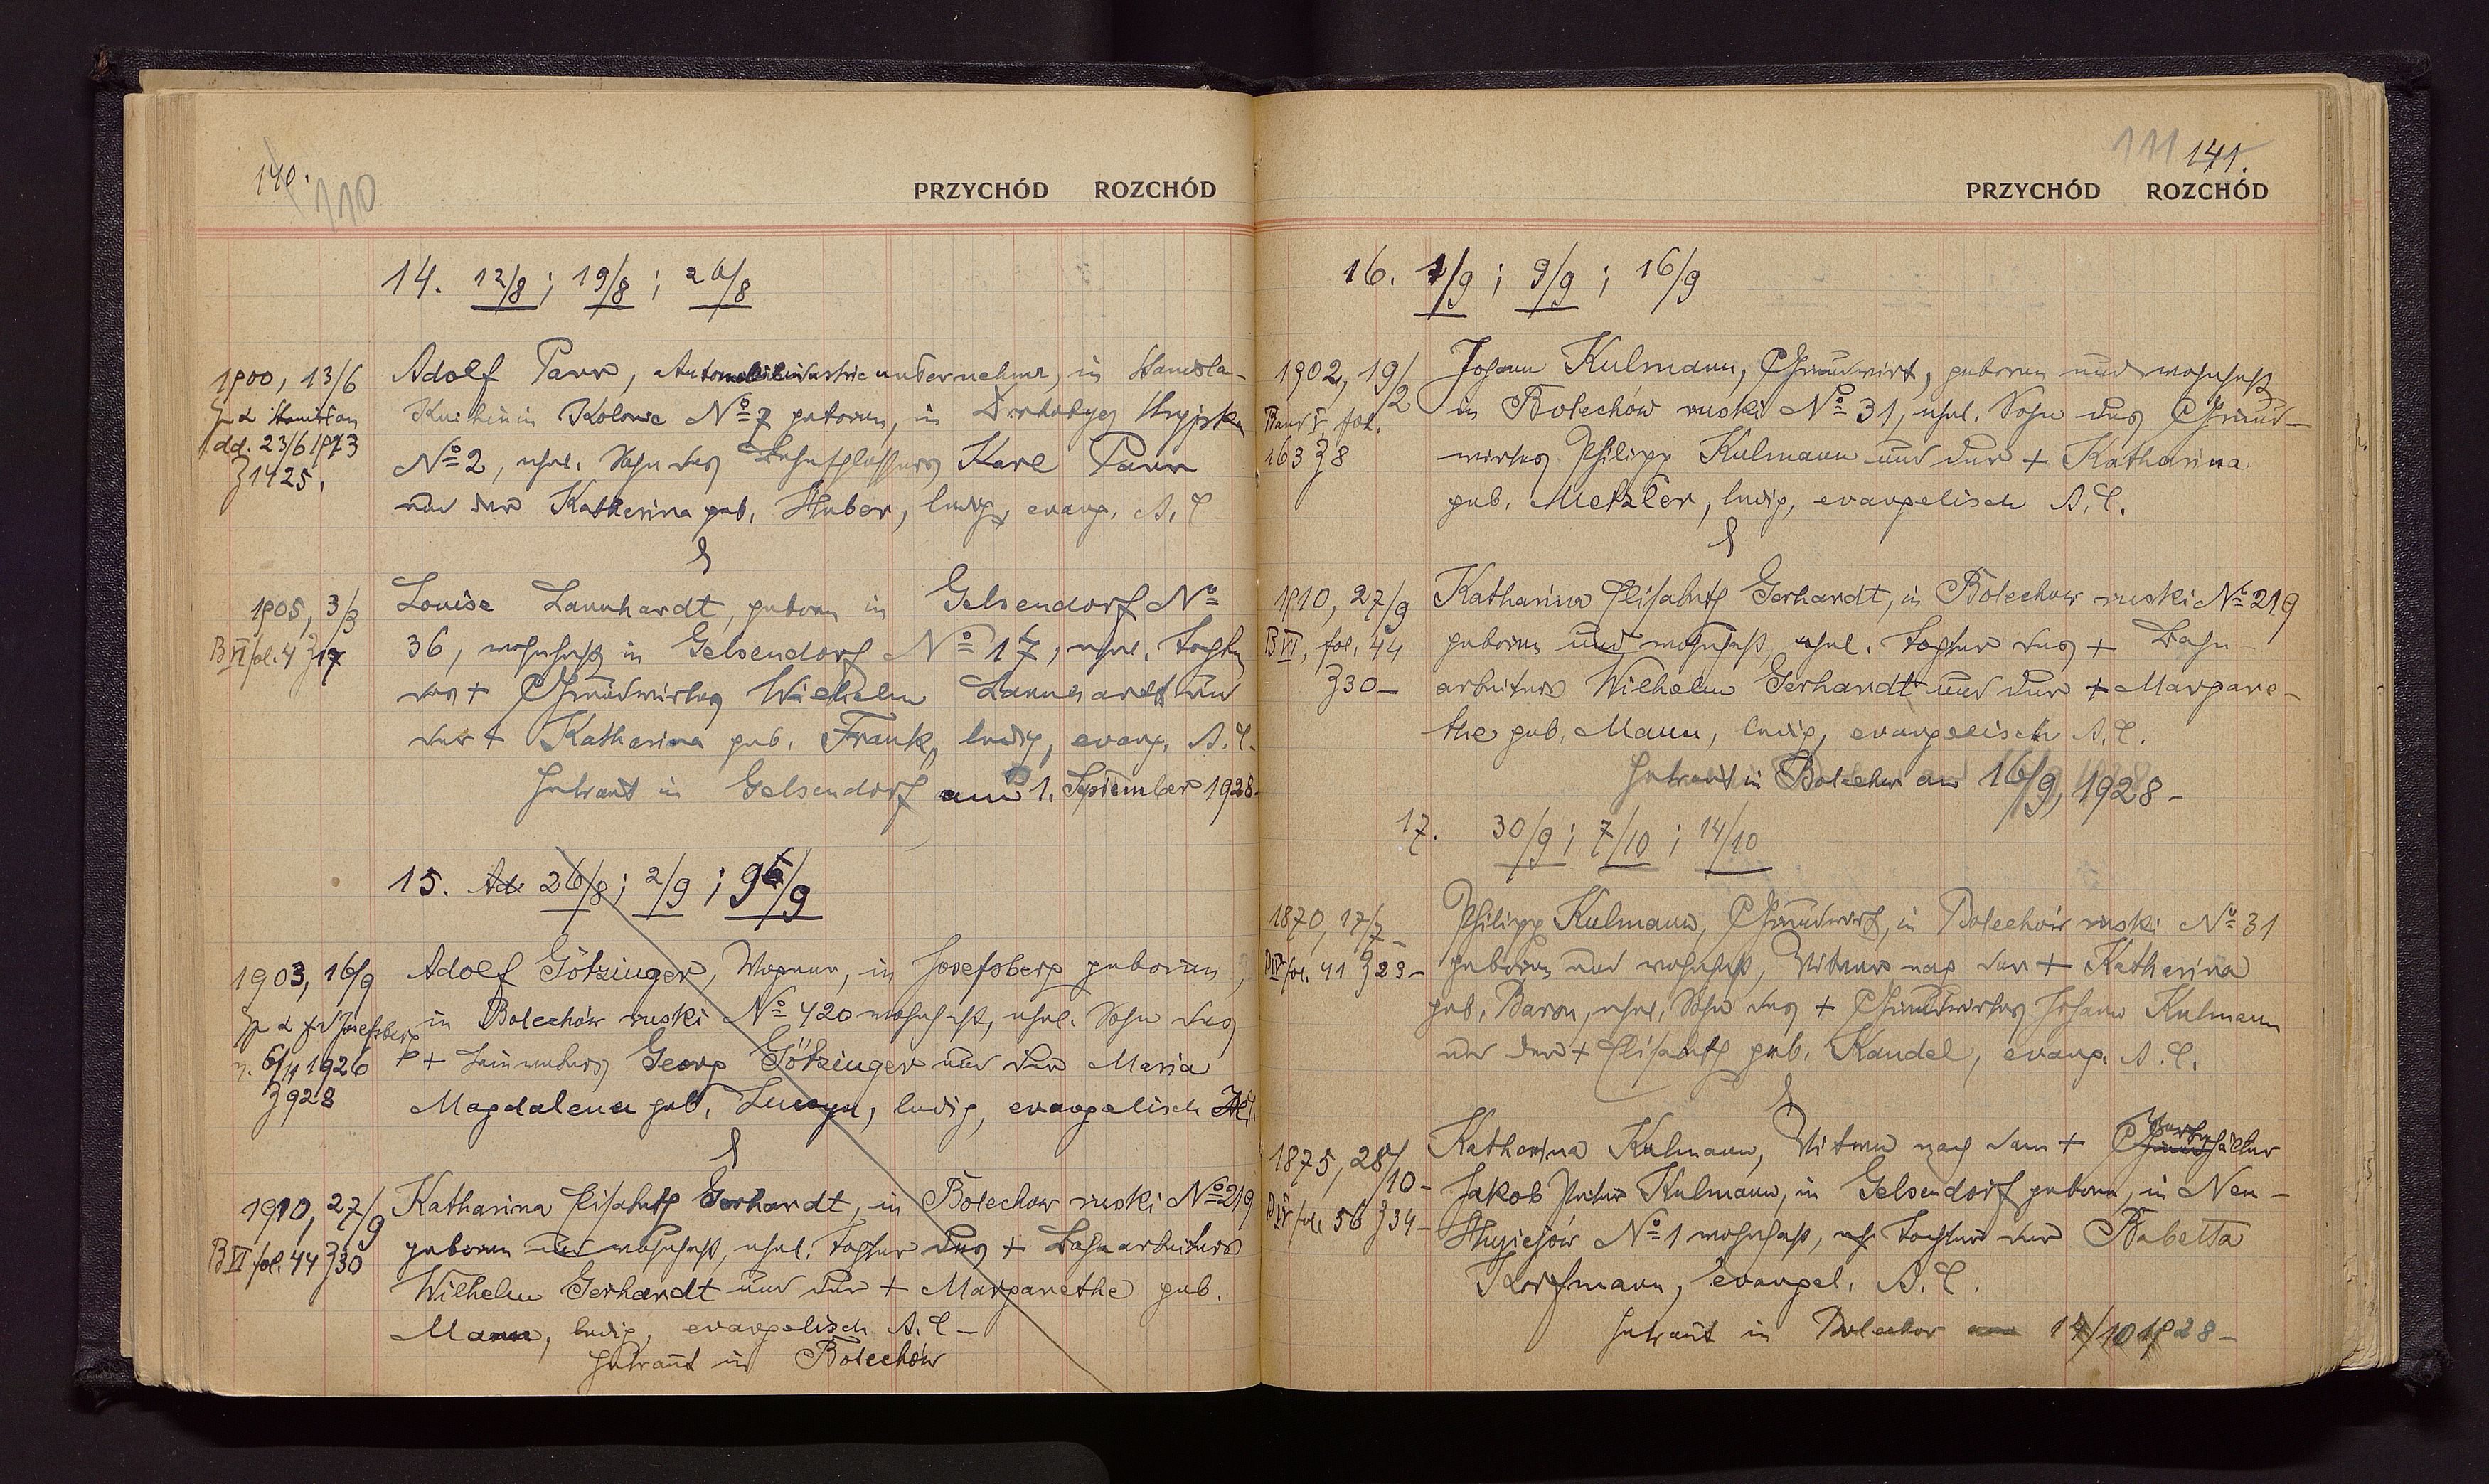 140.
110
PRZYCHÓD ROZCHÓD
14. 12/8 ; 19/8 ; 26/8
1900, 13/6
dd. 23/6 1923
Z 1425.
Adolf Parr, Automobilindustrieunternehmer, in Stanisla-
Knihinin Kolonie No 7 geboren, in Drohobycz Stryjska
No 2, ehel. Sohn des Bahnschlossers Karl Parr
und der Katharina geb. Huber, ledig, evang. A. C.
&
1905, 3/3
B VI fol. 4 Z 17
Louise Lannhardt, geboren in Gelsendorf No
36, wohnhaft in Gelsendorf No 17, ehel. Tochter
des + Grundwirtes Wilhelm Lannhardt und
der + Katharina geb. Frank, ledig, evang. A. C.
Getraut in Gelsendorf am 1. September 1928.
15. Ad. 26/8 ; 2/9 ; 9/9
1903, 16/9
Josefsberg
6/11 1926
Z 928
Adolf Götzinger, Wagner, in Josefsberg geboren,
in Bolechów ruski No 420 wohnhaft, ehel. Sohn des
+ Georg Götzinger und der Maria
Magdalena geb. ledig, evangelisch
&
1910, 27/9
B VI fol. 44 Z 30
Katharina Elisabeth Gerhardt, in Bolechow ruski No 219
geboren und wohnhaft, ehel. Tochter des + Bahnarbeiters
Wilhelm Gerhardt und der + Margarethe geb.
Mann, ledig, evangelisch A. C. -
Getraut in Bolechów
111 141.
PRZYCHÓD ROZCHÓD
16. 2/9 ; 9/9 ; 16/9
1902, 19/2
Band V fol.
163 Z 8
Johann Kulmann, Grundwirt, geboren und wohnhaft
in Bolechów ruski No 31, ehel. Sohn des Grund-
wirtes Philipp Kulmann und der + Katharina
geb. Metzler, ledig, evangelisch A. C.
&
1910, 27/9
B VI, fol. 44
Z 30 -
Katharina Elisabeth Gerhardt, in Bolechow ruski No 219
geboren und wohnhaft, ehel. Tochter des + Bahn-
arbeiters Wilhelm Gerhardt und der + Margare-
the geb. Mann, ledig, evangelisch A. C.
Getraut in Bolechow am 16/9, 1928 -
17. 30/9 ; 7/10 ; 14/10
1870, 17/7 -
fol. 41 Z 23 -
Philipp Kulmann, Grundwirt, in Bolechów ruski No 31
geboren und wohnhaft, Witwer nach der + Katharina
geb. Baron, ehel. Sohn des + Grundwirtes Johann Kulmann
und der + Elisabeth geb. Kandel, evang. A. C.
&
1875, 28/10 -
fol. 56 Z 34 -
Katharina Kulmann, Witwe nach dem +
Jakob Peter Kulmann, in Gelsendorf geboren, in Neu-
Stryjchów No 1 wohnhaft, Tochter der Babetta
Korfmann, evangel. A. C.
Getraut in Bolechow am 14/10 1928 -